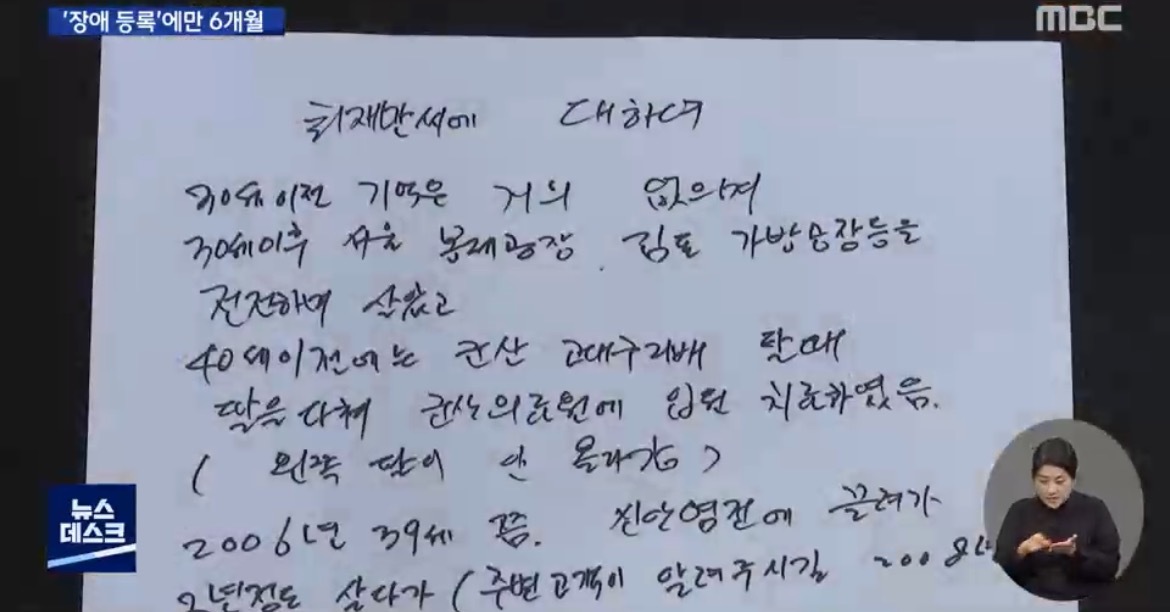 '장애 등록'에만 6개월
MBC
최재만씨에 대하여
30세 이전 기억은 거의 없으며
30세이후 서울 봉제공장, 김포 가방공장등을
전전하며 살았고
40세이전에는 군산 고대구리배 탈때
팔을 다쳐 군산의료원에 입원 치료하였음.
( 왼쪽 팔이 안 올라감 )
2006년 39세 쯤. 진안염전에 끌려가
2년정도 살다가 (주변고객이 알려주시길 2008년
뉴스
데스크